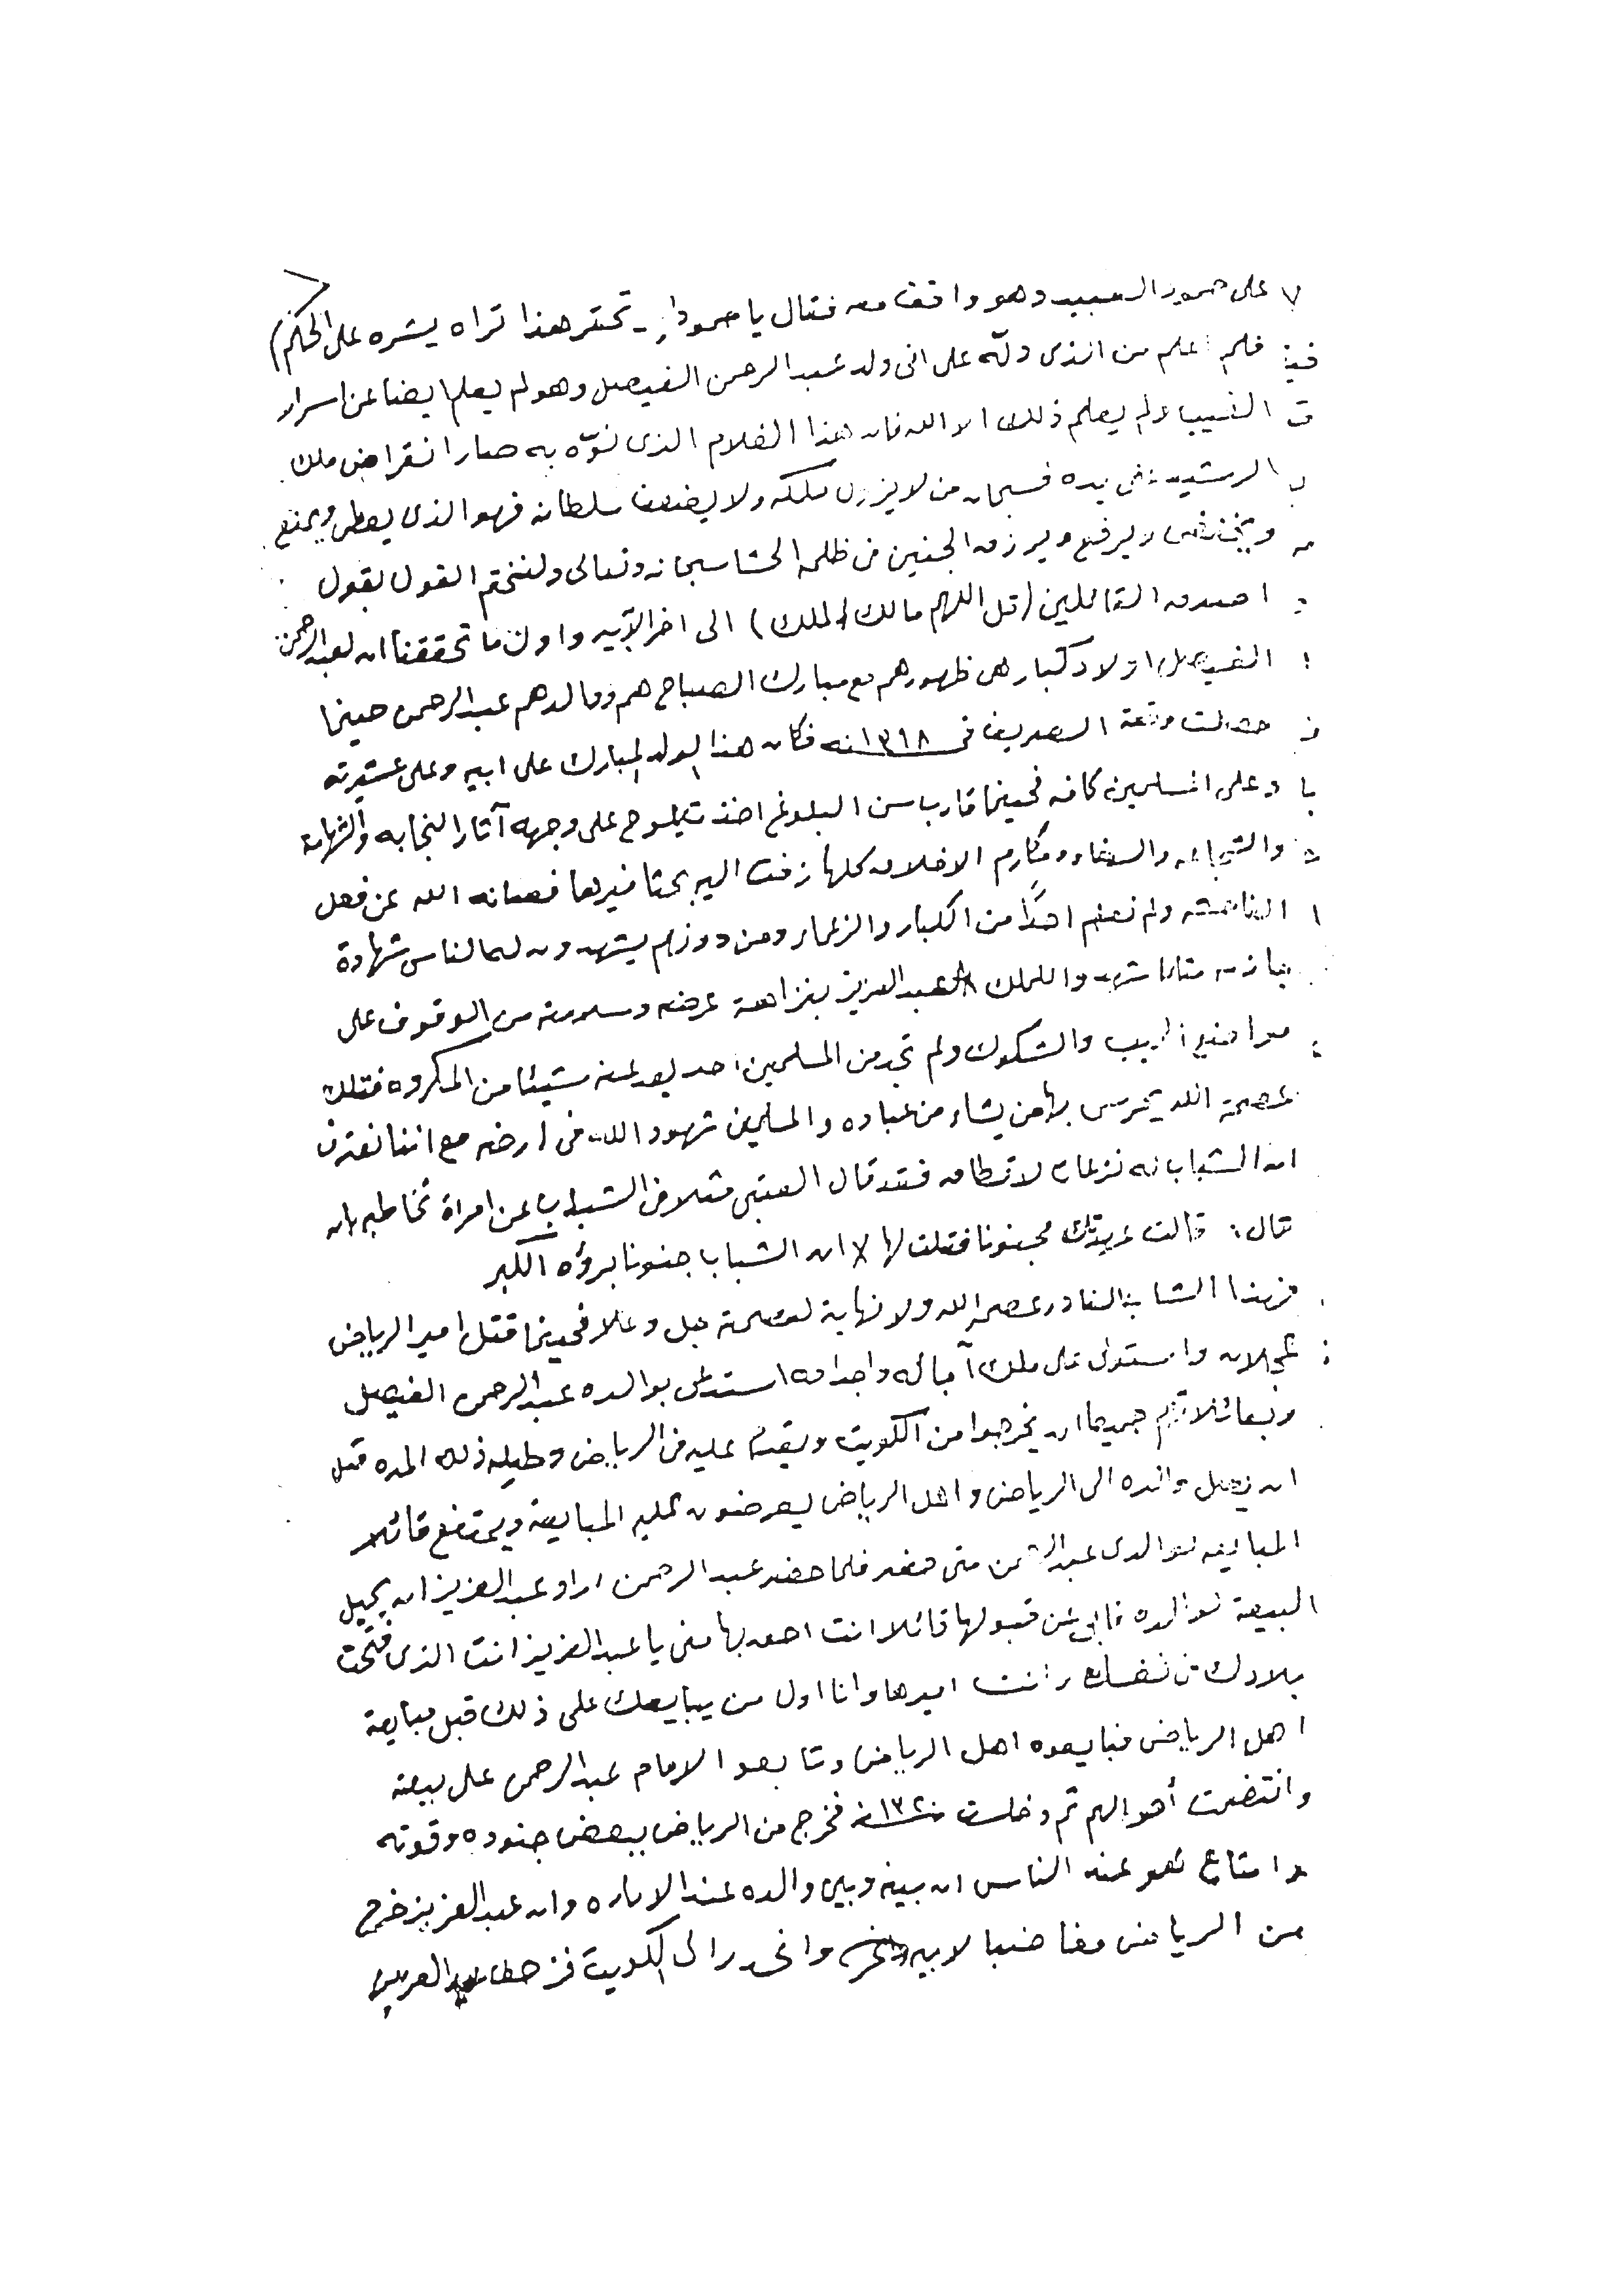 على حمود العبيد وهو واقف معه فقال يا حمود لا تحتقر هذا تراه يشره على الحكم)
فلم اعلم من الذى دله على انى ولد عبد الرحمن الفيصل وهو لم يعلم ايضا عن اسرار
الغيب ولم يعلم ذلك الا الله فان هذا الغلام الذى نوّه به صار انقراض ملك
الرشيد على يده فسبحان من لا يزول ملكه ولا يضعف سلطانه فهو الذى يعطى ويمنع
ويخفض ويرفع ويرزق الجنين فى ظلمة الحشا سبحانه وتعالى ولنختم القول بقول
اصدق القائلين (قل اللهم مالك الملك) الى اخر الآيه واول ما تحققنا ان لعبد الرحمن
الفيصل اولاد كبار هى ظهورهم مع مبارك الصباح هم ووالدهم عبد الرحمن حينما
حصلت وقعة الصريف فى ١٣١٨نه فكان هذا الولد المبارك على ابيه وعلى عشيرته
وعلى المسلمين كافه فحينما قارب سن البلوغ اخذت يلوح على وجهه آثار النجابه والشهامة
والشجاعه والسخاء ومكارم الاخلاق كلها زفت اليه بحذافيرها فصانه الله عن فعل
الفاحشه ولم نعلم احدًا من الكبار والزعماء ومن دونهم يشهدون لهم الناس شهادة
مثلما شهدوا للملك عبد العزيز بنزاهة عرضه وسلامته من الوقوف على
مواضع الريب والشكوك ولم تجد من المسلمين احد يعد عنه شيئا من المكروه فتلك
عصمة الله يحرس بها من يشاء من عباده والمسلمين شهود الله فى ارضه مع اننا نعترف
ان الشباب له نزعات لا تطاق فقد قال العتبى مثلا فى الشباب عن امراة تخاطبه بان
قال: قالت عهدتك مجنونا فقلت لها لا ان الشباب جنونا برؤه الكبر
فهذا الشاب النادر عصمه الله ولا نهاية لعصمته جل وعلا فحينما قتل امير الرياض
عجلان واستولى على ملك آبائه واجداده استدعى بوالده عبد الرحمن الفيصل
وبعائلاتهم جميعا ان يخرجوا من الكويت ويقدم عليه فى الرياض وطيلة ذلك المده قبل
ان يصل والده الى الرياض واهل الرياض يعرضون عليه المبايعة ويمتنع قائلا
المبايعه لوالدى عبد الرحمن متى حضر فلما حضر عبد الرحمن اراد عبد العزيز ان يحيل
البيعة لوالده فابى عن قبولها قائلا انت احق بها منى يا عبد العزيز انت الذى فتحت
بلادك فى نفسك وانت اميرها وانا اول من يبايعك على ذلك قبل مبايعة
اهل الرياض فبايعوه اهل الرياض وتابعوا الامام عبد الرحمن على بيعته
وانتضمت أحوالهم ثم دخلت ١٣٢٠نه فخرج من الرياض ببعض جنوده وقوته
واشاع نحو عند الناس ان بينه وبين والده عند الاماره وان عبد العزيز خرج
من الرياض مغاضبا لابيه وانحدر الى الكويت